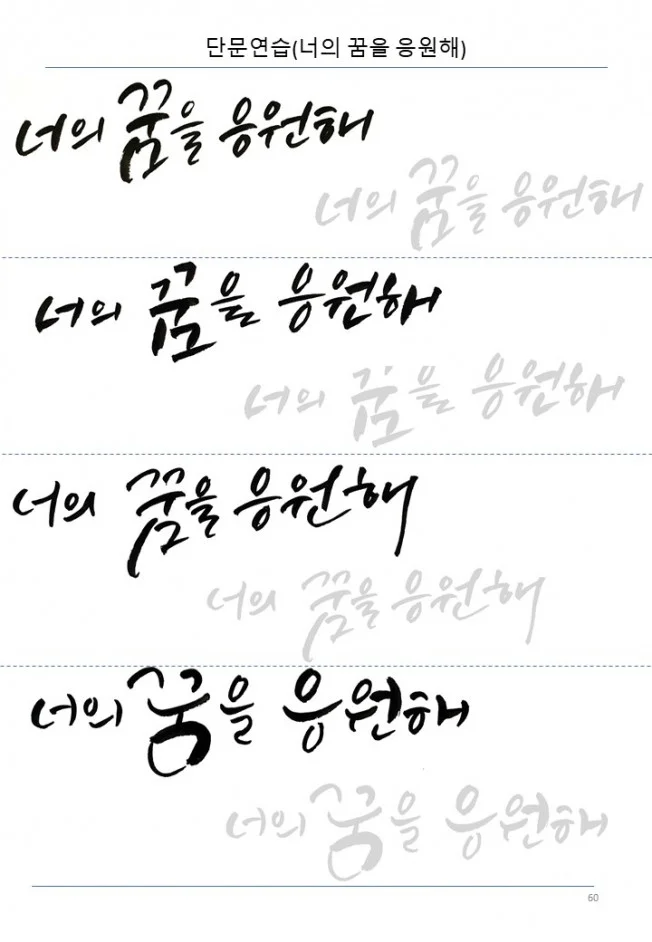 단문연습(너의 꿈을 응원해)
너의 꿈을 응원해
너의 꿈을 응원해
너의 꿈을 응원해
너의 꿈을 응원해
너의 꿈을 응원해
너의 꿈을 응원해
너의 꿈을 응원해
너의 꿈을 응원해
60